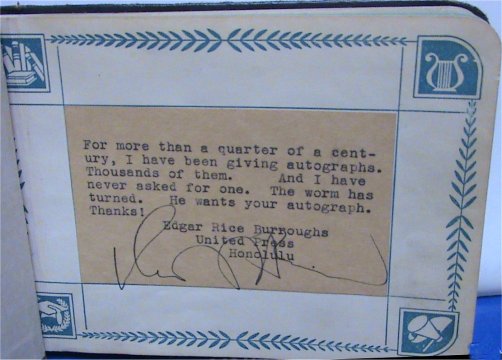 For more than a quarter of a cent-
ury, I have been giving autographs.
Thousands of them. And I have
never asked for one. The worm has
turned. He wants your autograph.
Thanks!
Edgar Rice Burroughs
United Press
Honolulu